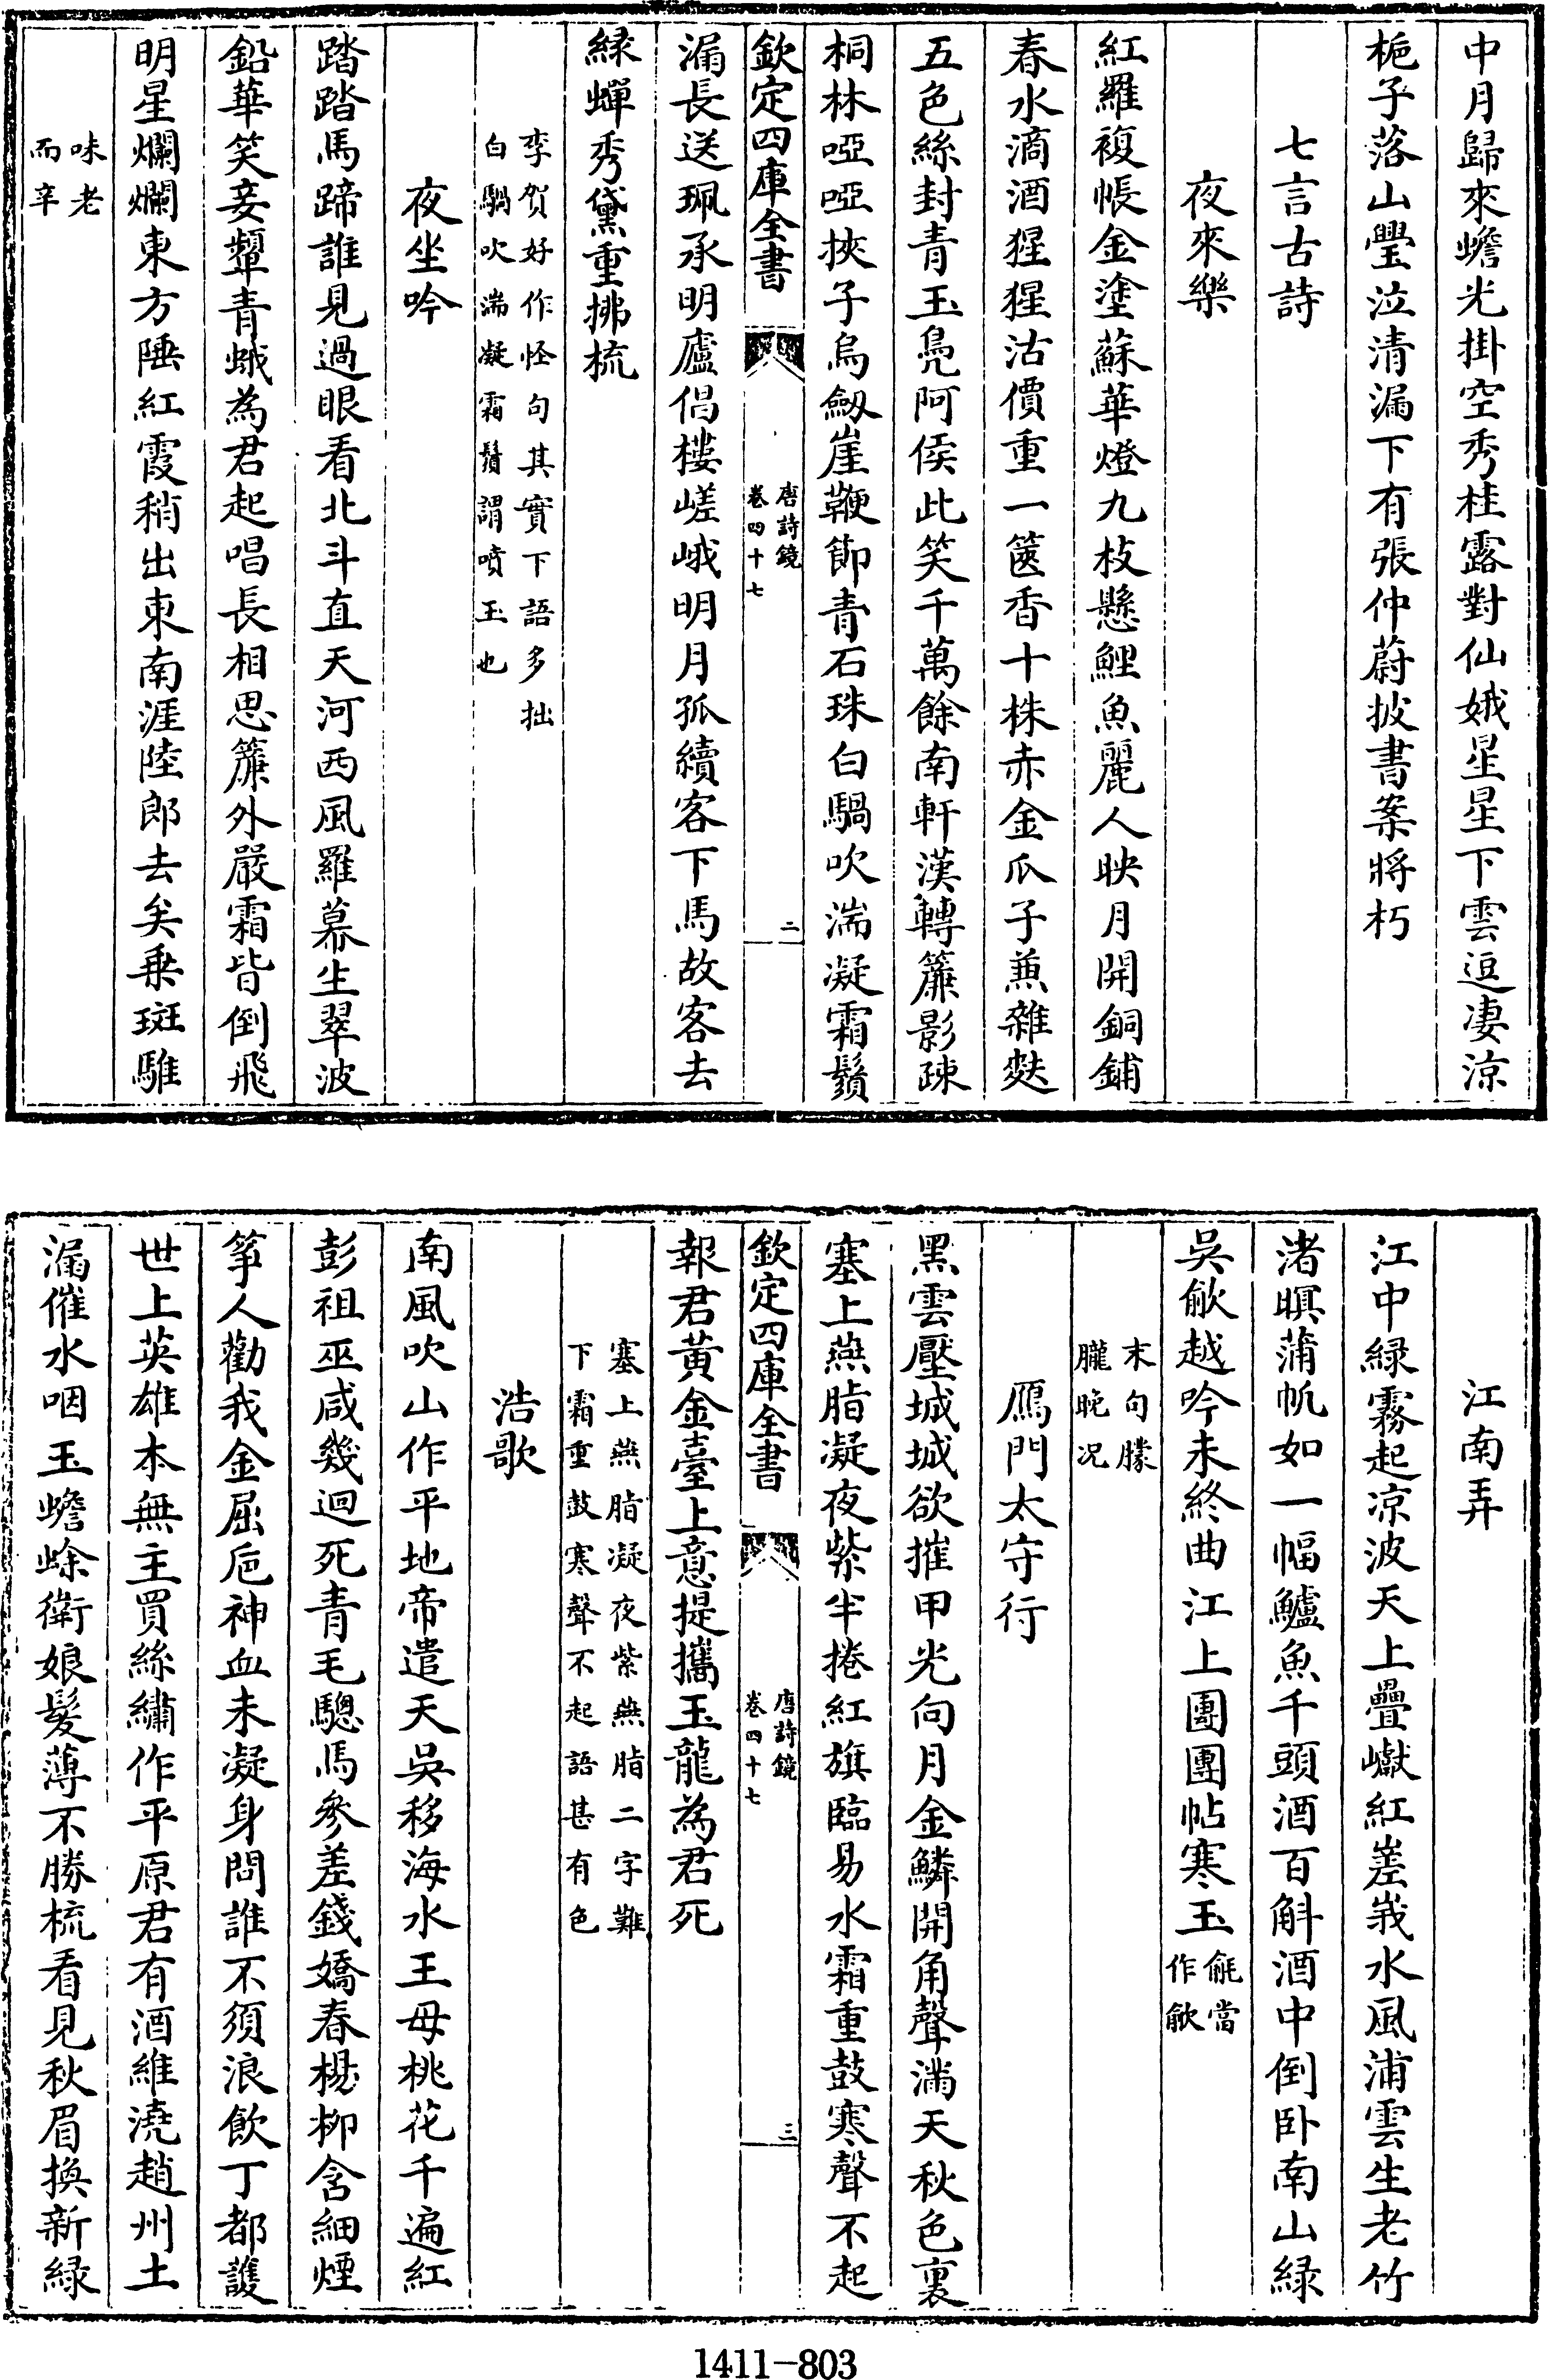 中月歸來蟾光掛空秀桂露對仙娥星星下雲逗凄涼
梔子落山璺泣清漏下有張仲蔚披書案將朽
七言古詩
夜來樂
紅羅複帳金塗蘇華燈九枝懸鯉魚麗人映月開銅鋪
春水滴酒猩猩沽價重一篋香十株赤金瓜子兼雜麩
五色絲封青玉鳧阿侯此笑千萬餘南軒漢轉簾影疎
桐林啞啞挾子烏劔崖鞭節青石珠白騧吹湍凝霜鬚
欽定四庫全書
唐詩鏡
卷四十七
二
漏長送珮承明廬倡樓嵯峨明月孤續客下馬故客去
緑蟬秀黛重拂梳
李賀好作怪句其實下語多拙
白騧吹湍凝霜鬚謂噴玉也
夜坐吟
踏踏馬蹄誰見過眼看北斗直天河西風羅幕生翠波
鉛華笑妾顰青蛾為君起唱長相思簾外嚴霜皆倒飛
明星爛爛東方陲紅霞稍出東南涯陸郎去矣乗斑騅
味老
而辛
江南弄
江中緑霧起凉波天上疊巘紅嵳峩水風浦雲生老竹
渚暝蒲帆如一幅鱸魚千頭酒百斛酒中倒卧南山緑
吳歈越吟未終曲江上團團帖寒玉
毹當
作歈
末句朦
朧晚况
鴈門太守行
黑雲壓城城欲摧甲光向月金鱗開角聲滿天秋色裏
塞上燕脂凝夜紫半捲紅旗臨易水霜重鼓寒聲不起
欽定四庫全書
唐詩鏡
卷四十七
三
報君黄金臺上意提攜玉龍為君死
塞上燕脂凝夜紫燕脂二字難
下霜重鼓寒聲不起語甚有色
浩歌
南風吹山作平地帝遣天吳移海水王母桃花千遍紅
彭祖巫咸幾迴死青毛驄馬參差錢嬌春楊柳含細煙
筝人勸我金屈卮神血未凝身問誰不須浪飲丁都護
世上英雄本無主買絲繡作平原君有酒維澆趙州土
漏催水咽玉蟾蜍衛娘髮薄不勝梳看見秋眉換新緑
1411-803